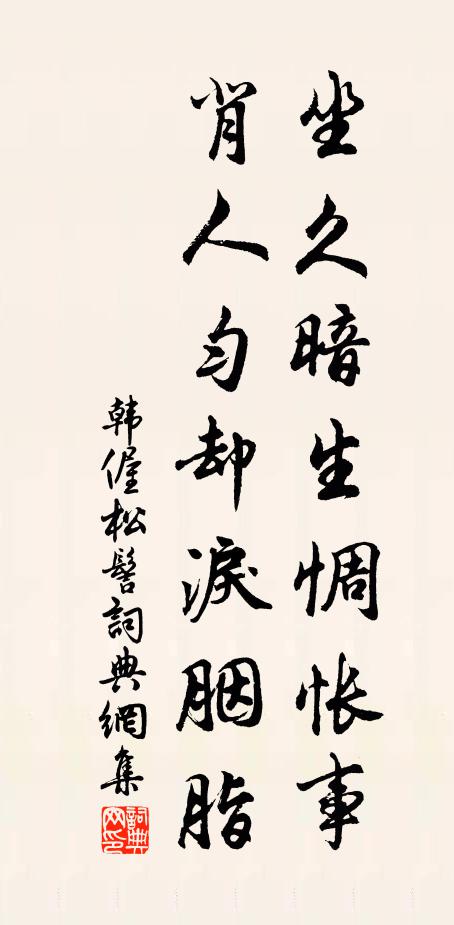 坐久暗生惆怅事
背人匀却淚胭脂
韩偓松髻詞典網集
詞典网印